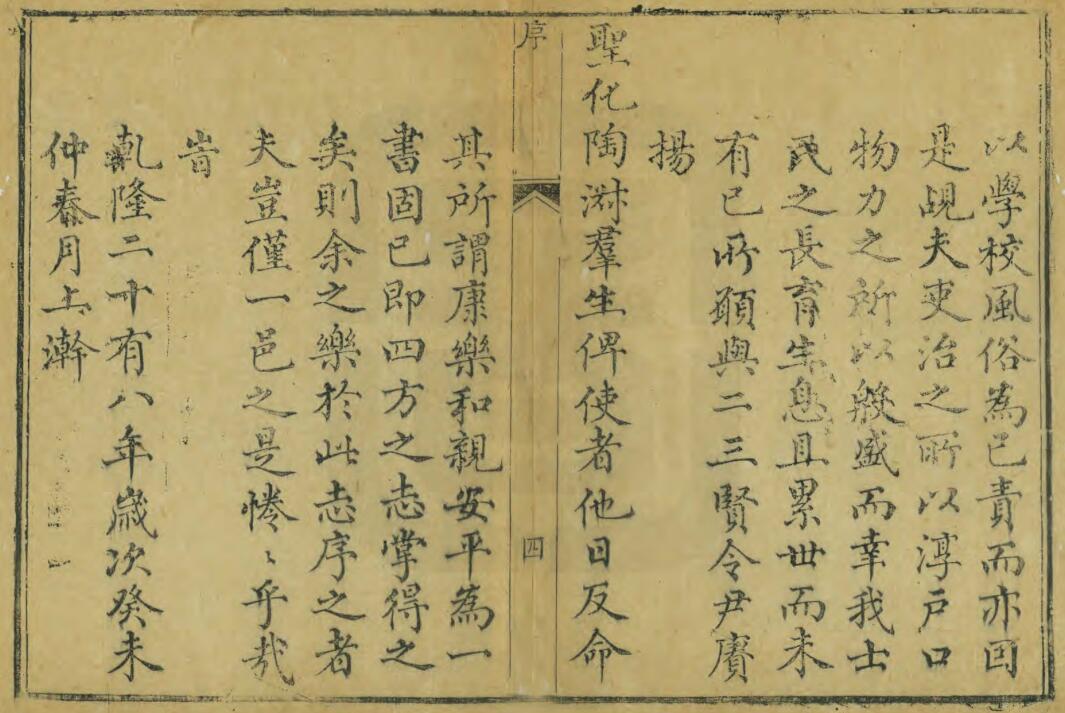 以學校風俗為已責而亦因
是覘夫吏治之所以淳戸口
物力之所以殷盛而幸我士
民之長育生息且累世而未
有已所願與二三賢令尹賡
揚
聖化陶淑羣生俾使者他日反命
序
四
其所謂康樂和親安平為一
書固已即四方之志掌得之
矣則余之樂於此志序之者
夫豈僅一邑之是惓〻乎哉
旹
乹隆二十有八年歲次癸未
仲春月上澣